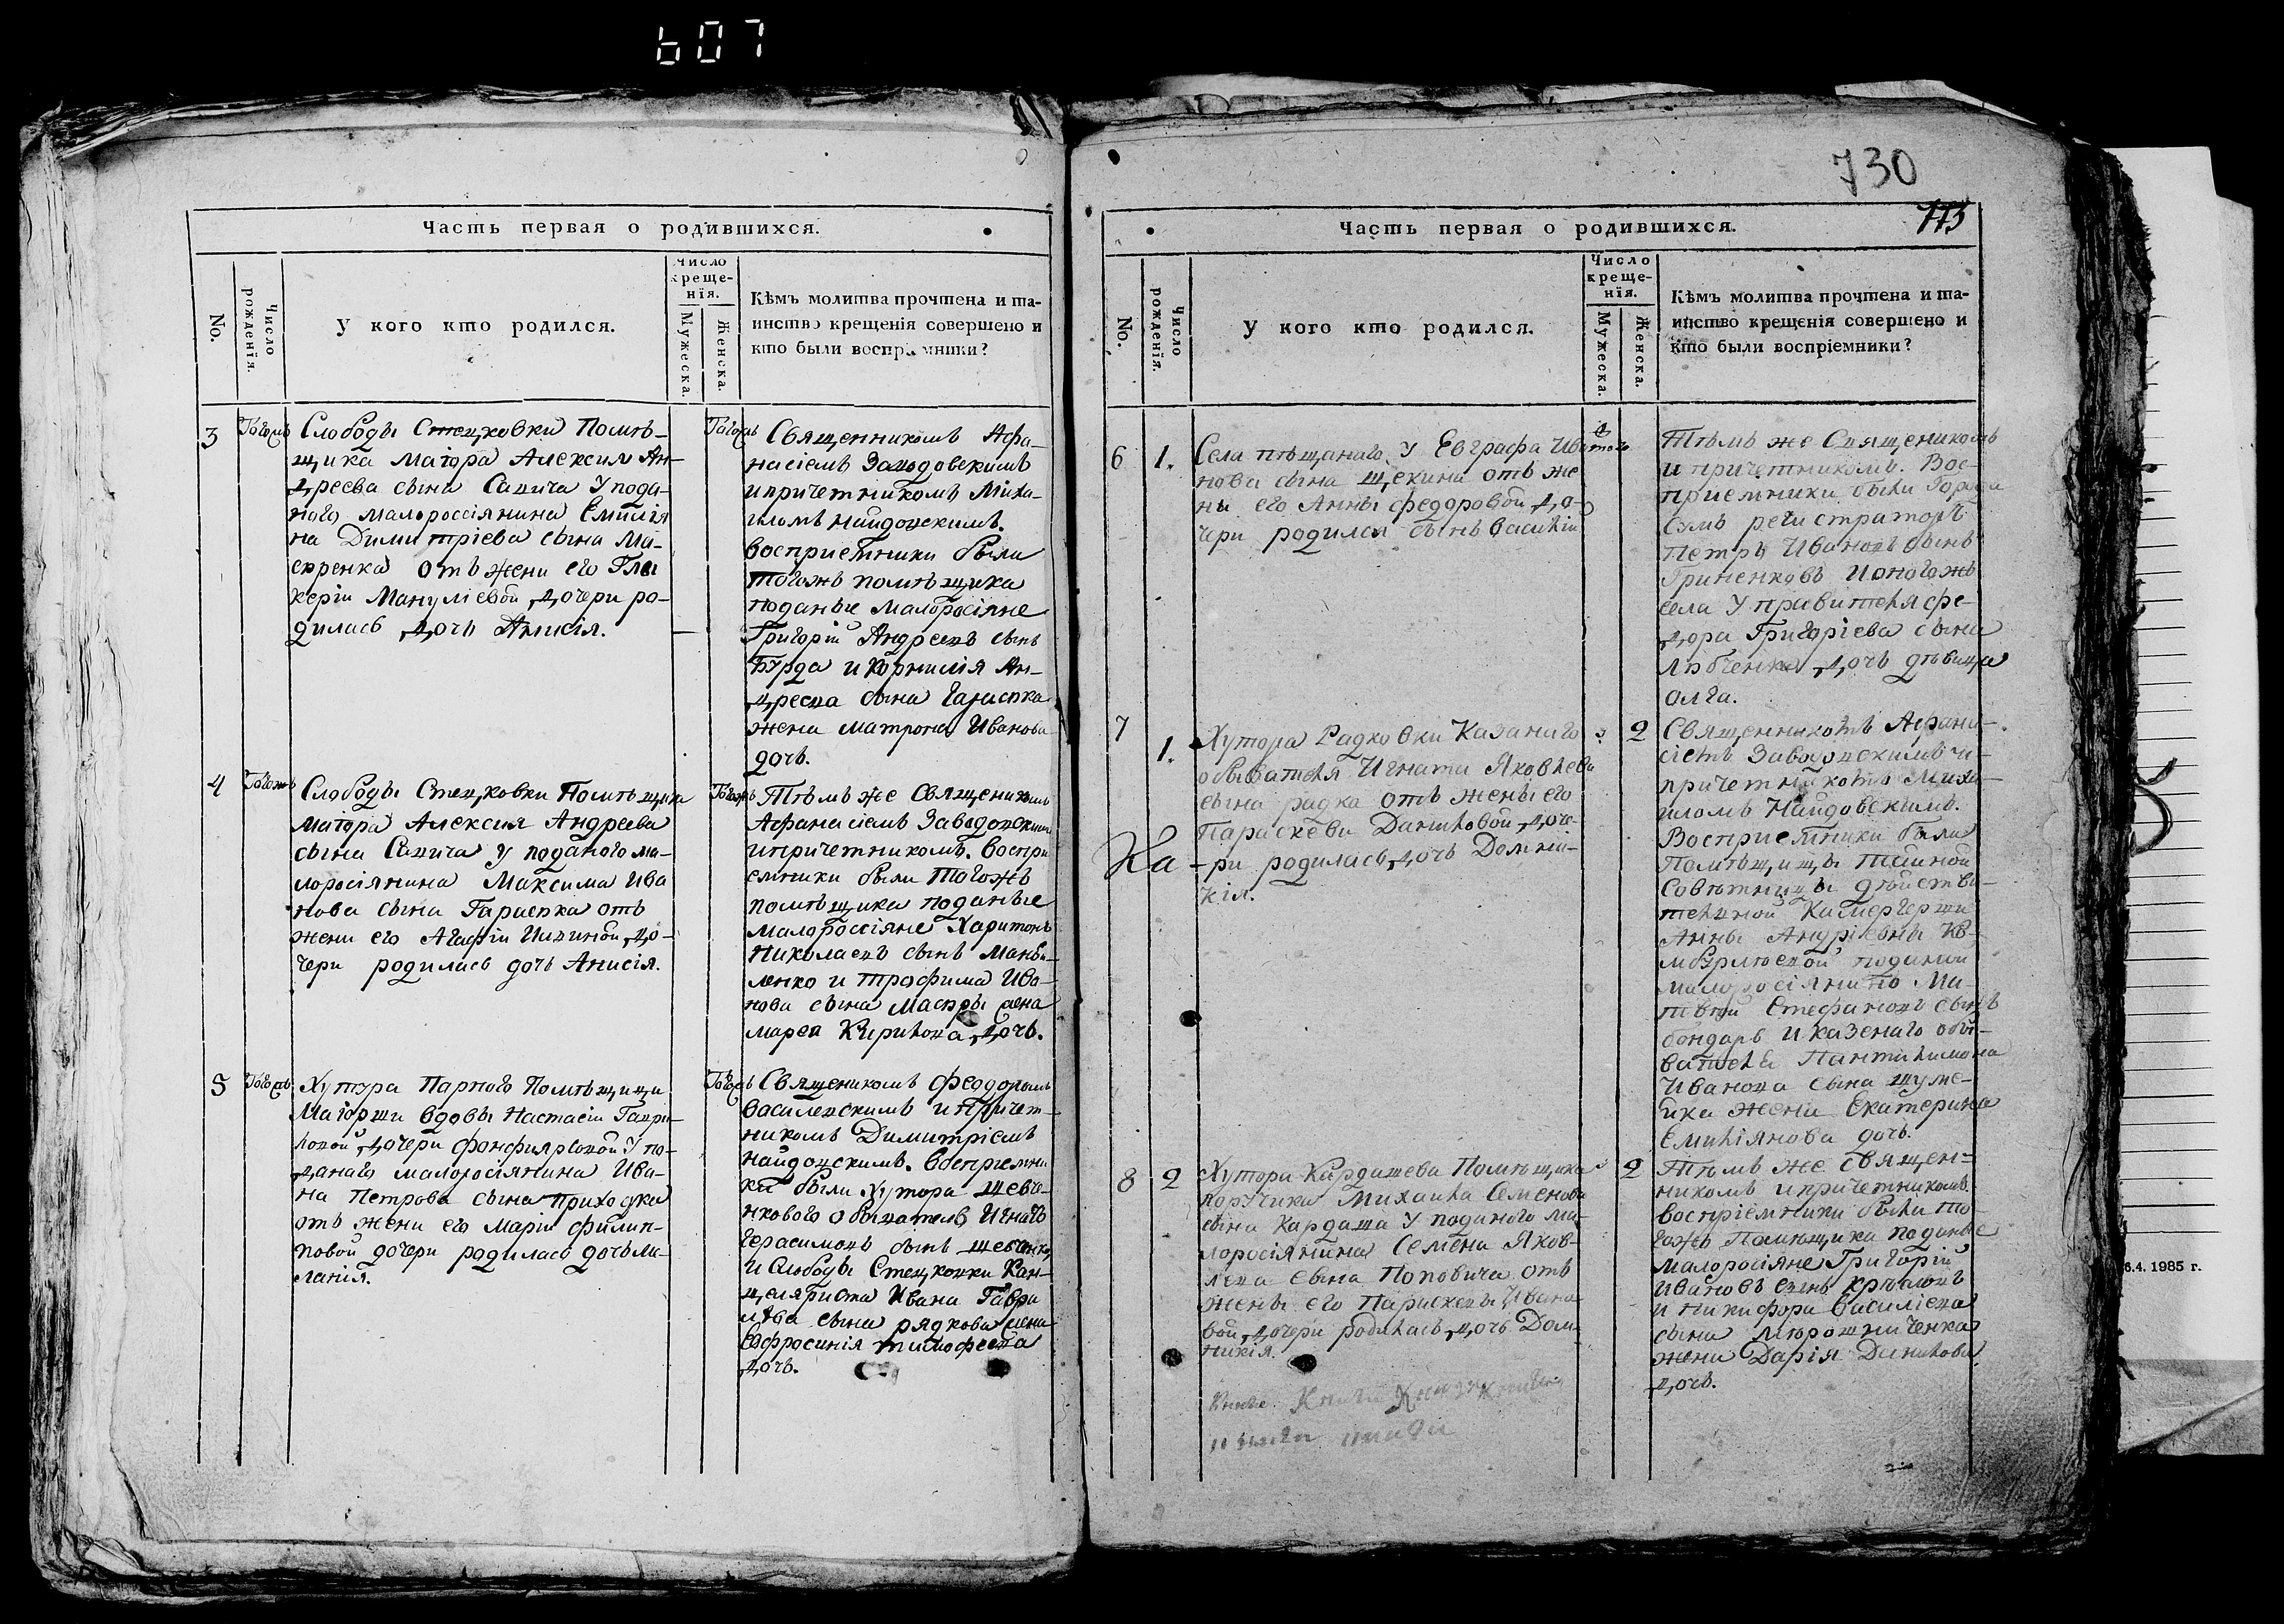 607
Часть первая о родившихся.
No.
Число рожденія.
У кого кто родился.
Число
креще-
нія.
Мужеска.
Женска.
Кѣмъ молитва прочтена и та-
инство крещенія совершено и
кто были воспріемники?
3
Слободы Стецковки Помѣ-
щика Маіора Алексия Ан-
дреева сына Савича У пода-
ного малороссіянина Емилія
на Димитріева сына Ма-
кренка отъ жени его Глы
керіи Мануліевой дочери ро-
дилась дочь Анисія.
Священникомъ Афа-
насіемъ Заводовскимъ
и причетникомъ Миха-
иломъ Найдовскимъ.
восприемники были
тогожъ помѣщика
поданые малоросіяне
Григорій Андреевъ сынъ
Бурда и Корнилія Ан-
дреева сына
жена матрона Иванова
дочь.
4
Слободы Стецковки Помѣщика
Маіора Алексия Андреева
сына Савича у поданого ма-
лоросіянина Максима Ива
нова сына Гариспка отъ
жени его Агафіи дo-
чери родилась дочь Анисія.
Тѣмъ же Священикомъ
Афанасіемъ Заводовскимъ
и причетникомъ. воспри
емники были тогожъ
помѣщика поданые
малороссіяне Харитонъ
Николаевъ сынъ
ленко и трофима Ива-
нова сына жена
марѳа Кирилова дочь.
5
Хутора Парного Помѣщици
Маіорши вдовы Настасіи Гаври-
ловой дочери У по-
данаго малоросіянина Ива-
на Петрова сына приходка
отъ жени его Маріи филип-
повой дочери родилась дочь ме-
ланія.
Священикомъ феодоромъ
василевскимъ и причет-
никомъ Димитріемъ
найдовскимъ. восприемни
ки были Хутора шевче-
нкового обыватель Игнатъ
герасимовъ сынъ шевченко
и Слободы Стецковки Кан-
целяриста Ивана Гаври
лова сына рядкова жена
Ефросинія тимофеева
дочь.
730
775
Часть первая о родившихся.
No.
Число рожденія.
У кого кто родился.
Число
креще-
нія.
Мужеска.
Женска.
Кѣмъ молитва прочтена и та-
инство крещенія совершено и
кто были воспріемники?
6
1.
Села пѣщаного у Евграфа Ива
нова сына щекина отъ же
ны его Анны федоровой до-
чери родился сынъ василій
Тѣмъ же Священикомъ
и причетникомъ. Вос-
приемники были
регистраторъ
Петръ Ивановъ сынъ
Гриненковъ и оногожъ
села Управителя фе-
дора Григоріева сына
дочь дѣвица
олга.
7
1.
2
Хутора Радковки Казанаго
обывателя Игната Яковлева
сына радка отъ жены его
Параскеви Даниловой доче-
Ка - ри родилась дочь Домни-
кія.
Священникомъ Афана-
сіемъ Заводовскимъ и
причетникомъ Миха-
иломъ Найдовскимъ.
Восприемники были
Помѣщицы тайной
Совѣтницы дѣйстви-
телной Камергерши
Анны Андріевны Ко-
мбурлеевой поданой
малоросіянинъ Ма-
твѣй Стефановъ сынъ
бондарь и казенаго обы-
вателя Пантилимона
Иванова сына шуме-
йка жена Екатерина
Емиліянова дочь.
8
2
2
Хутора Кардашева Помѣщика
Поручика Михаила Семенова
сына Кардаша у поданого ма-
лоросіянина Семена Яков-
лева сына Поповича отъ
жены его Параскевы Ивано-
вой дочери родилась дочь Дом-
никія.
Тѣмъ же священ-
никомъ и причетникомъ.
воспріемники были то-
гожъ Помѣщика поданые
малоросіяне Григорій
Ивановъ сынъ
и никифора василіева
сына мірошниченка
жена Дарія Данилова
дочь.
6.4.1985 г.